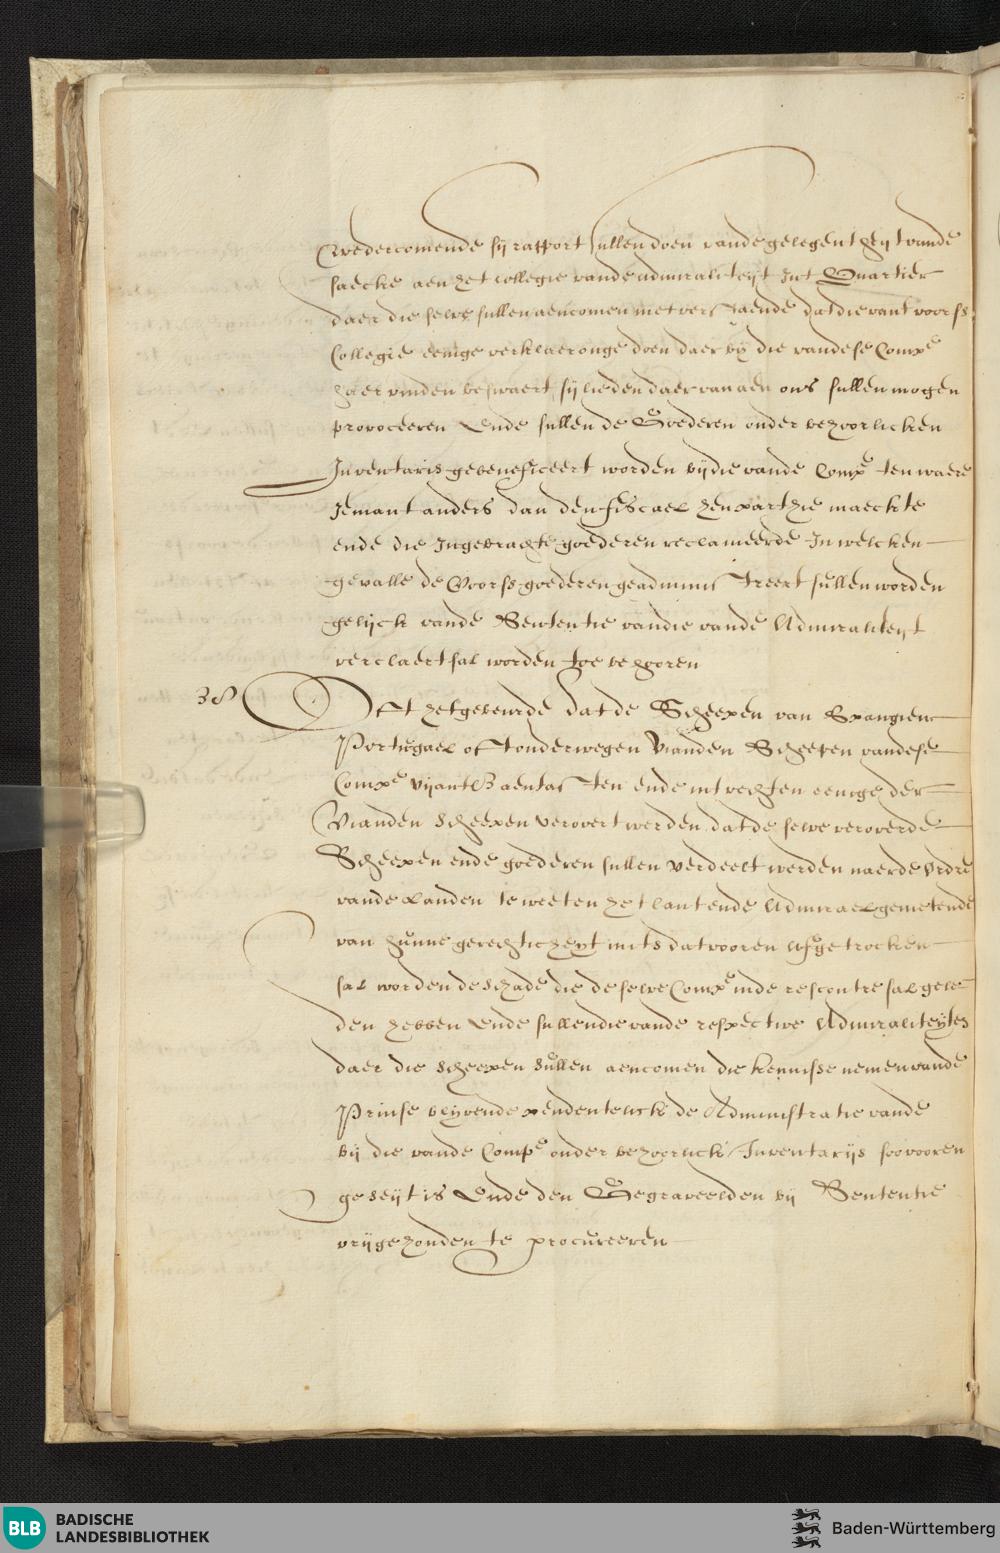 Wedercomende sij rapport sullen doen vande gelegentheijt vande
saecke aen het collegie vande admiraliteijt Int Quartier
daer die selve sullen aencomen met verstaende dat die vant voorss
Collegie eenige verklaeronge doen daer bij die van dese Compe
haer vinden beswaert sij lieden daer van aen ons sullen mogen
provoceeren Ende sullen de Goederen onder behoorlicken
Inventaris gebeneficeert worden bij die vande Compe ten waere
Iemant anders dan den fiscael hen parthie maeckte
ende die Ingebrachte goederen reclameerde In welcken
gevalle de Voorss goederen geadministreert sullen worden
gelijck vande Sententie van die vande Admiraliteijt
verclaert sal worden toe behooren
38 Oft het gebeurde dat de Scheepen van Spangien
Portugael oft onderwegen Vianden Scheepen van dese
Compe vijantlB aentasten ende int vechten eenige der
Vianden scheepen verovert werden dat de selve veroverde
Scheepen ende goederen sullen verdeelt werden naer de Ordre
vande Landen te weeten het lant ende Admirael genietende
van hunne gerechticheijt mits dat vooren afgetrocken
sal worden de schade die de selve Compe inde rescontre sal gele
den hebben Ende sullen die vande respective Admiraliteijten
daer die scheepen sullen aencomen die kennisse nemen vande
Prinse blijvende pendentelick de Administratie vande
bij die vande Compe onder behoorlick Inventarijs soo vooren
geseijt is Ende den Gegraveelden bij Sententie
vrijgehonden te procureeren
BLB BADISCHE
LANDESBIBLIOTHEK
Baden-Württemberg